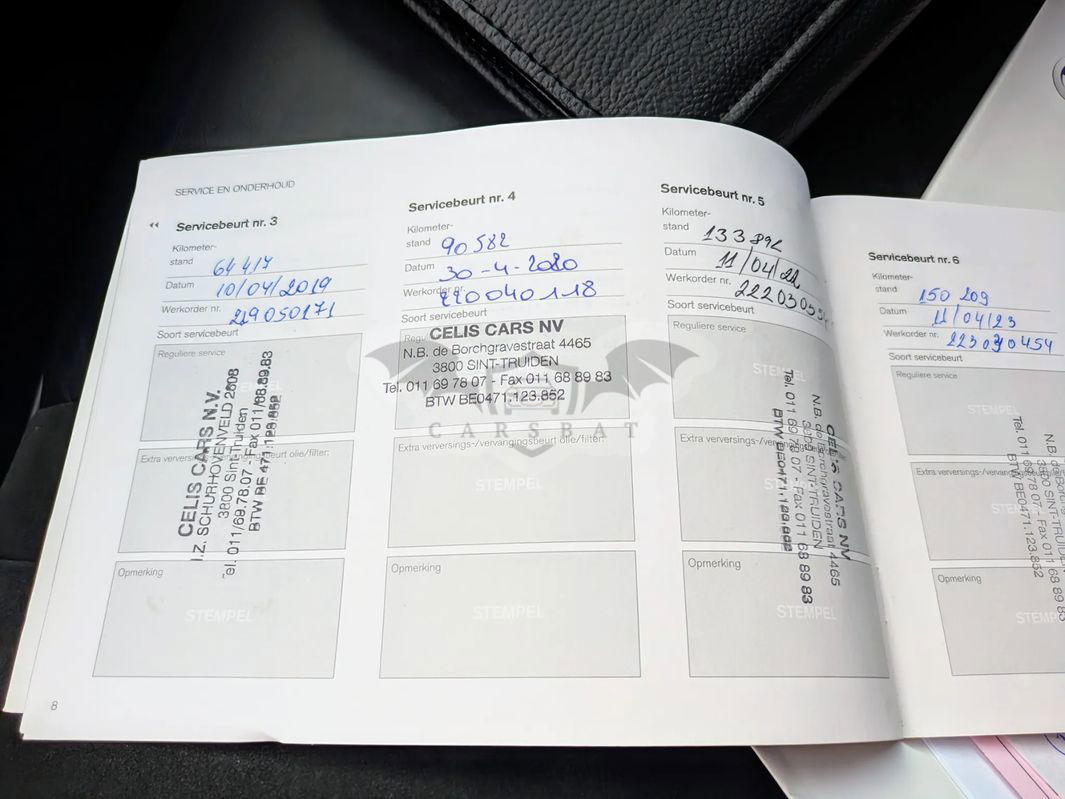 SERVICE EN ONDERHOUD
Servicebeurt nr. 3
Kilometer-
stand 64417
Datum 10/04/2019
Werkorder nr. 219050171
Soort servicebeurt
Reguliere service
STEMPEL
CELIS CARS N.V.
I.Z. SCHURHOVENVELD 2608
3800 Sint-Truiden
Tel. 011/69.78.07 - Fax 011/68.89.83
BTW BE 471.123.852
Extra verversings-/vervangingsbeurt olie/filter:
Opmerking
STEMPEL
8
Servicebeurt nr. 4
Kilometer-
stand 90582
Datum 30-4-2020
Werkorder nr. 220040118
Soort servicebeurt
CELIS CARS NV
N.B. de Borchgravestraat 4465
3800 SINT-TRUIDEN
Tel. 011 69 78 07 - Fax 011 68 89 83
BTW BE0471.123.852
CARSBAT
Extra verversings-/vervangingsbeurt olie/filter:
STEMPEL
Opmerking
STEMPEL
Servicebeurt nr. 5
Kilometer-
stand 133892
Datum 11/04/22
Werkorder nr.
Soort servicebeurt
Reguliere service
STEMPEL
CELIS CARS NV
N.B. de Borchgravestraat 4465
3800 SINT-TRUIDEN
Tel. 011 69 78 07 - Fax 011 68 89 83
BTW BE0471.123.852
Extra verversings-/vervangingsbeurt
STEMPEL
Opmerking
STEMPEL
Servicebeurt nr. 6
Kilometer-
stand 150 209
Datum 11/04/23
Werkorder nr. 223030454
Soort servicebeurt
Reguliere service
STEMPEL
N.B. de
3800 SINT-TRUIDEN
Tel. 011 69 78 07 - Fax 011 68 89 83
BTW BE0471.123.852
Extra verversings-/vervangingsbeurt
STEMPEL
Opmerking
STEMPEL